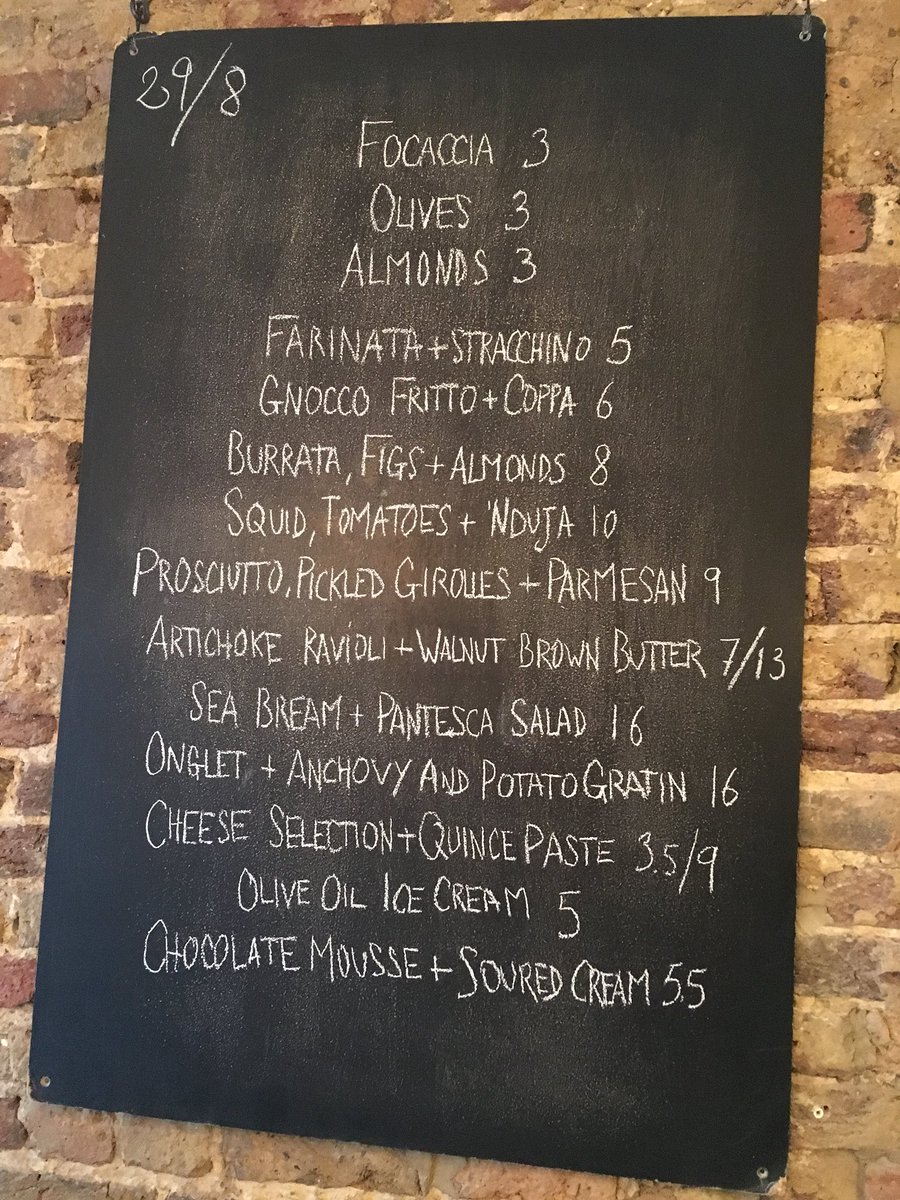 29/8
FOCACCIA 3
OLIVES 3
ALMONDS 3
FARINATA + STRACCHINO 5
GNOCCO FRITTO + COPPA 6
BURRATA, FIGS + ALMONDS 8
SQUID, TOMATOES + 'NDUJA 10
PROSCIUTTO, PICKLED GIROLLES + PARMESAN 9
ARTICHOKE RAVIOLI + WALNUT BROWN BUTTER 7/13
SEA BREAM + PANTESCA SALAD 16
ONGLET + ANCHOVY AND POTATO GRATIN 16
CHEESE SELECTION + QUINCE PASTE 3.5/9
OLIVE OIL ICE CREAM 5
CHOCOLATE MOUSSE + SOURED CREAM 5.5